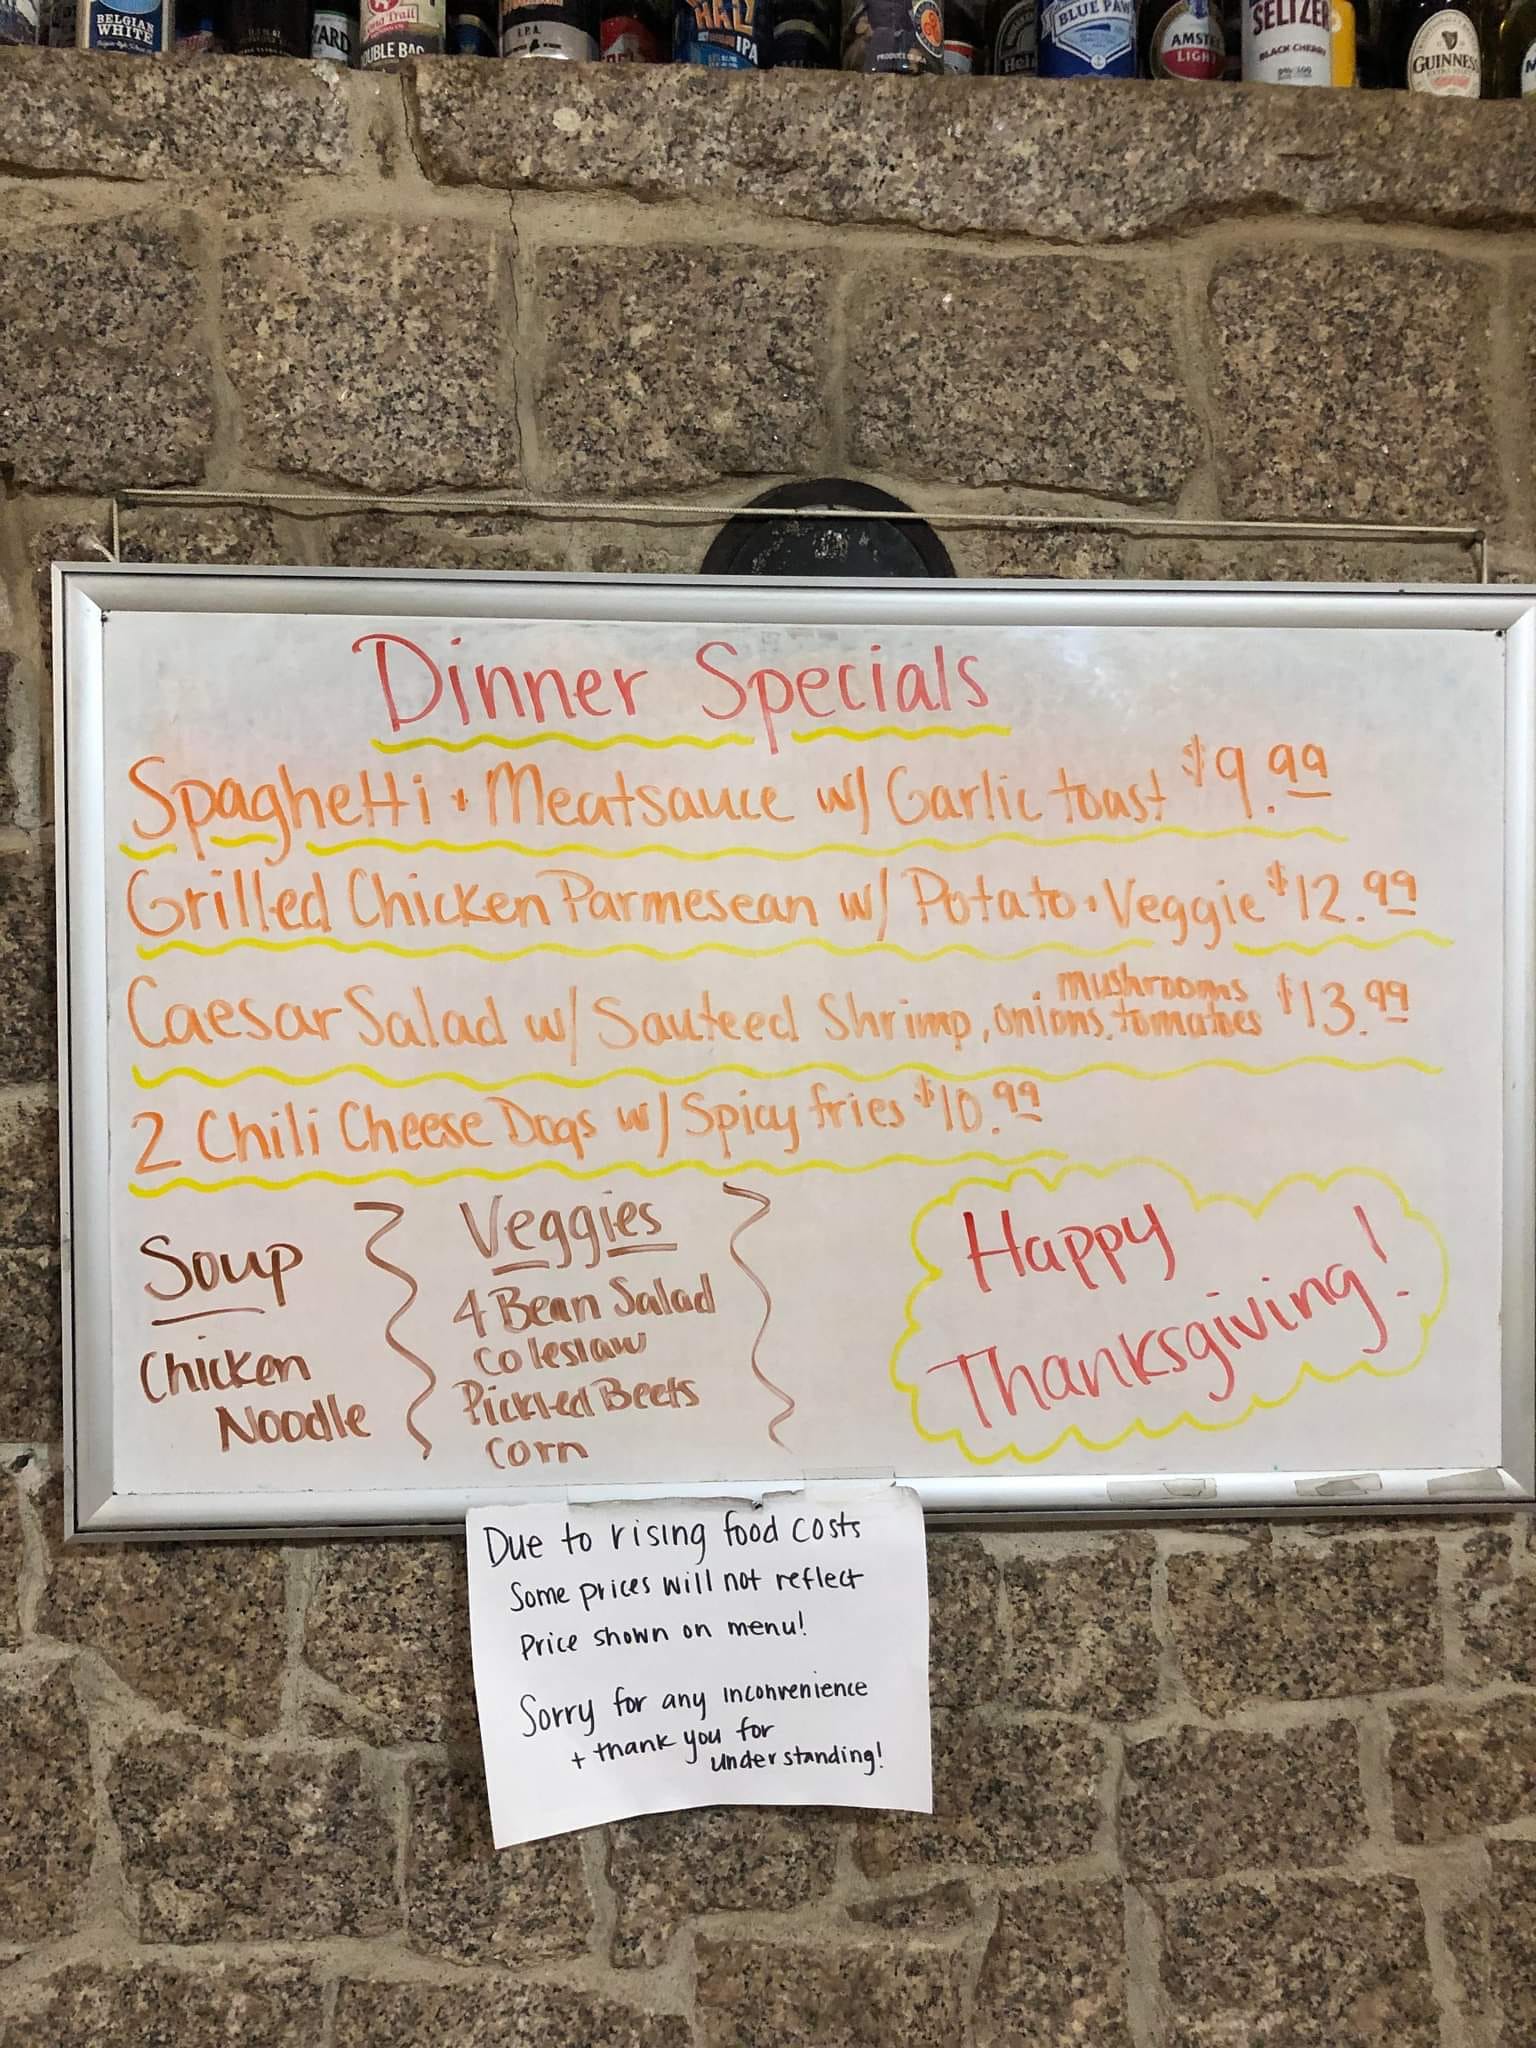 BELGIAN
WHITE
YARD
DOUBLE BAG
I.P.A.
IPA
BLUE PAW
AMSTEL
LIGHT
SELTZER
BLACK CHERRY
GUINNESS
Dinner Specials
Spaghetti + Meatsauce w/ Garlic toast $9.99
Grilled Chicken Parmesean w/ Potato + Veggie $12.99
mushrooms
Caesar Salad w/ Sauteed Shrimp, onions, tomatoes $13.99
2 Chili Cheese Dogs w/ Spicy fries $10.99
Soup
Chicken
Noodle
Veggies
4 Bean Salad
Coleslaw
Pickled Beets
Corn
Happy
Thanksgiving!
Due to rising food costs
Some prices will not reflect
Price shown on menu!
Sorry for any inconvenience
+ thank you for
understanding!